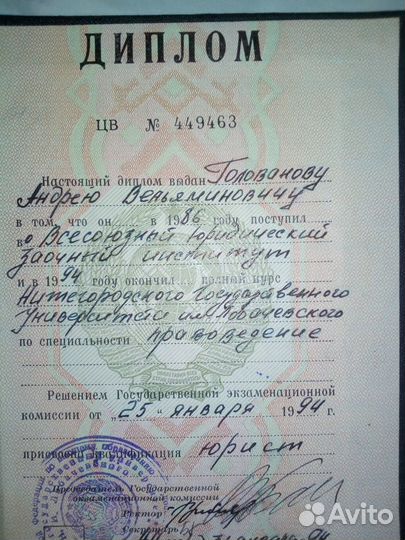 ДИПЛОМ
ЦВ № 449463
Настоящий диплом выдан Голованову
Андрею Веньяминовичу
в том, что он в 1986 году поступил
в Всесоюзный юридический
заочный институт
и в 1994 году окончил полный курс
Нижегородского Государственного
Университета им. Лобачевского
по специальности правоведение
Решением Государственной экзаменационной
комиссии от „25" января 1994 г.
присвоена квалификация юрист
Председатель Государственной
экзаменационной комиссии
Ректор
Секретарь
января 94
Avito